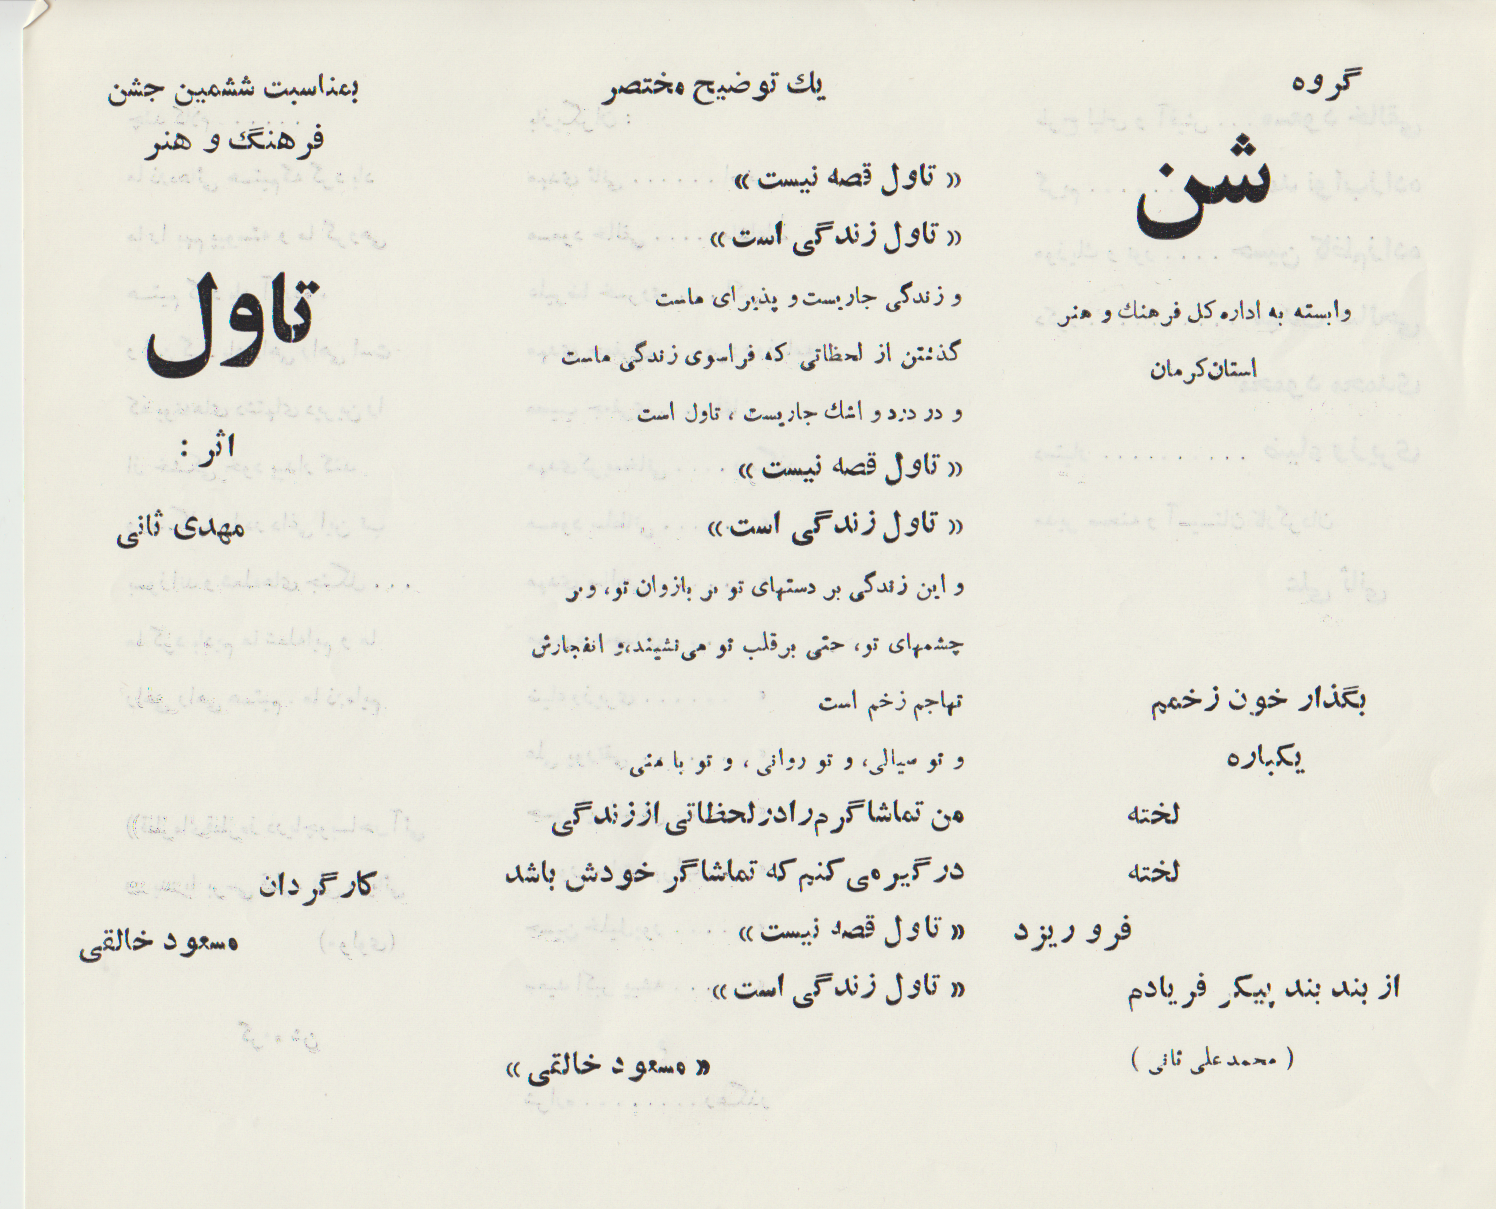 گروه
شن
وابسته به اداره کل فرهنك و هنر
استان کرمان
بگذار خون زخمم
یکباره
لخته
لخته
فرو ریزد
از بند بند پیکر فریادم
( محمد علی ثانی )
یك توضیح مختصر
« تاول قصه نیست »
« تاول زندگی است »
و زندگی جاریست و پذیرای ماست
گذشتن از لحظاتی که فراسوی زندگی ماست
و در درد و اشك جاریست ، تاول است
« تاول قصه نیست »
« تاول زندگی است »
و این زندگی بر دستهای تو بر بازوان تو، و بر
چشمهای تو، حتی بر قلب تو می‌نشیند،و انفجارش
تهاجم زخم است
و تو سیالی، و تو روانی ، و تو با منی
من تماشاگرم را در لحظاتی از زندگی
درگیر می کنم که تماشاگر خودش باشد
« تاول قصه نیست »
« تاول زندگی است »
« مسعود خالقی »
بمناسبت ششمین جشن
فرهنگ و هنر
تاول
اثر :
مهدی ثانی
کارگردان
مسعود خالقی